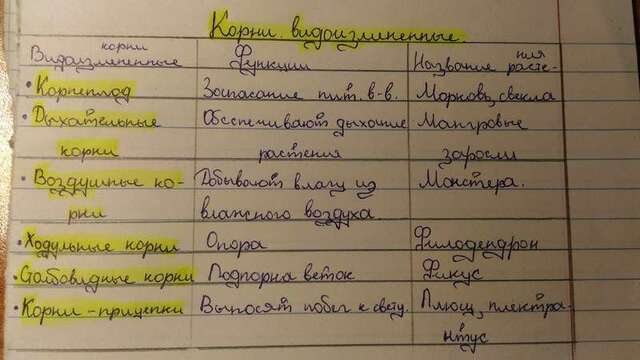 Корни видоизмененные.
корни
Видоизмененные Функции Название расте-
ния
• Корнеплод Запасание пит. в-в. Морковь, свекла
• Дыхательные Обеспечивают дыхание Мангровые
корни растения заросли
• Воздушные ко- Добывают влагу из Монстера.
рни влажного воздуха
• Ходульные корни Опора Филодендрон
• Столбовидные корни Подпорна веток Фикус
• Корни-прицепки Выносят побег к свету. Плющ, плектра-
нтус